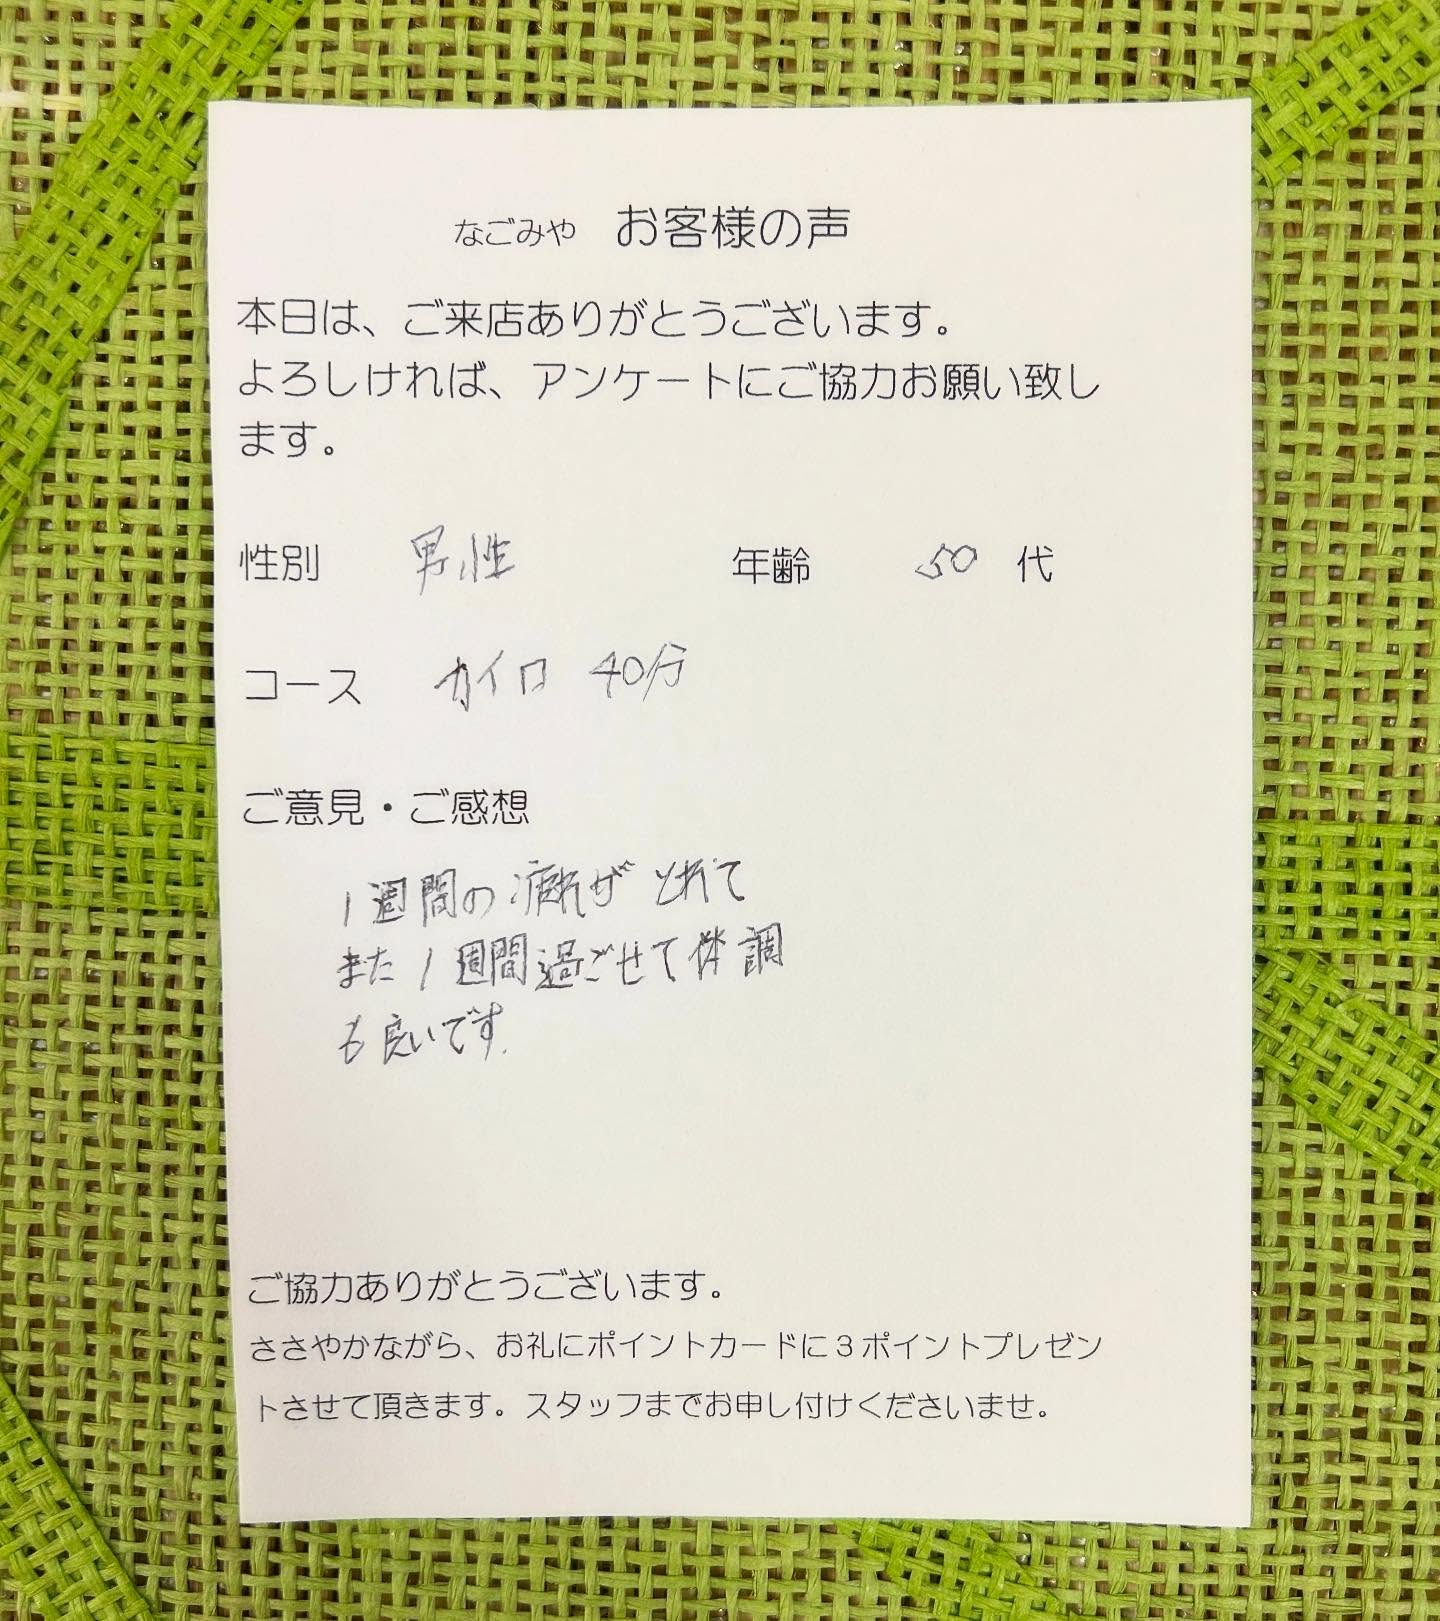 なごみや お客様の声
本日は、ご来店ありがとうございます。
よろしければ、アンケートにご協力お願い致し
ます。
性別 男性 年齢 50 代
コース カイロ 40分
ご意見・ご感想
1週間の疲れがとれて
また1週間過ごせて体調
も良いです.
ご協力ありがとうございます。
ささやかながら、お礼にポイントカードに３ポイントプレゼン
トさせて頂きます。スタッフまでお申し付けくださいませ。